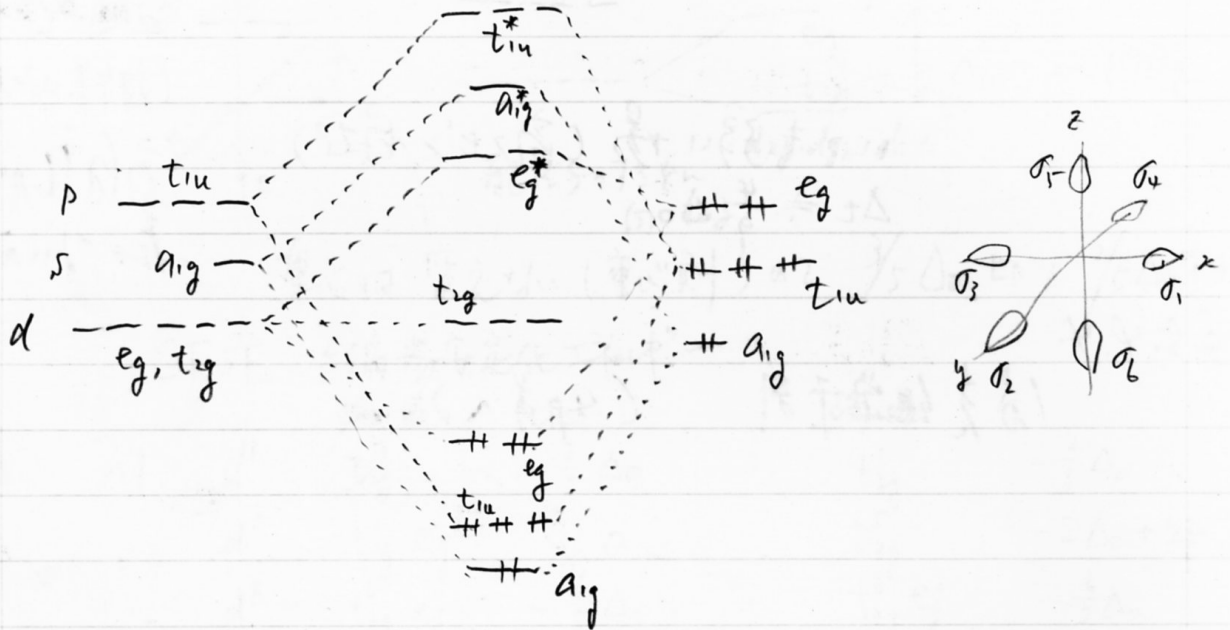 t₁ᵤ*
a₁g*
eg*
p t₁ᵤ
s a₁g
d
eg, t₂g
t₂g
eg
t₁ᵤ
a₁g
eg
t₁ᵤ
a₁g
z
σ₅ σ₄
σ₃ σ₁ x
y σ₂ σ₆